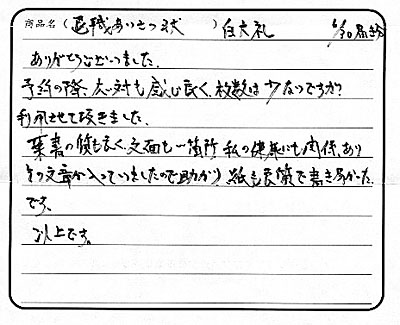 商品名（退職あいさつ状）白大礼 6/30届き分
ありがとうございました。
予約の際、応対も感じ良く、枚数は少ないですが
利用させて頂きました。
葉書の質も良く、文面も一箇所 私の健康にも関係あり
その文章が入っていましたので助かり 紙も良質で書き易かった
です。
以上です。